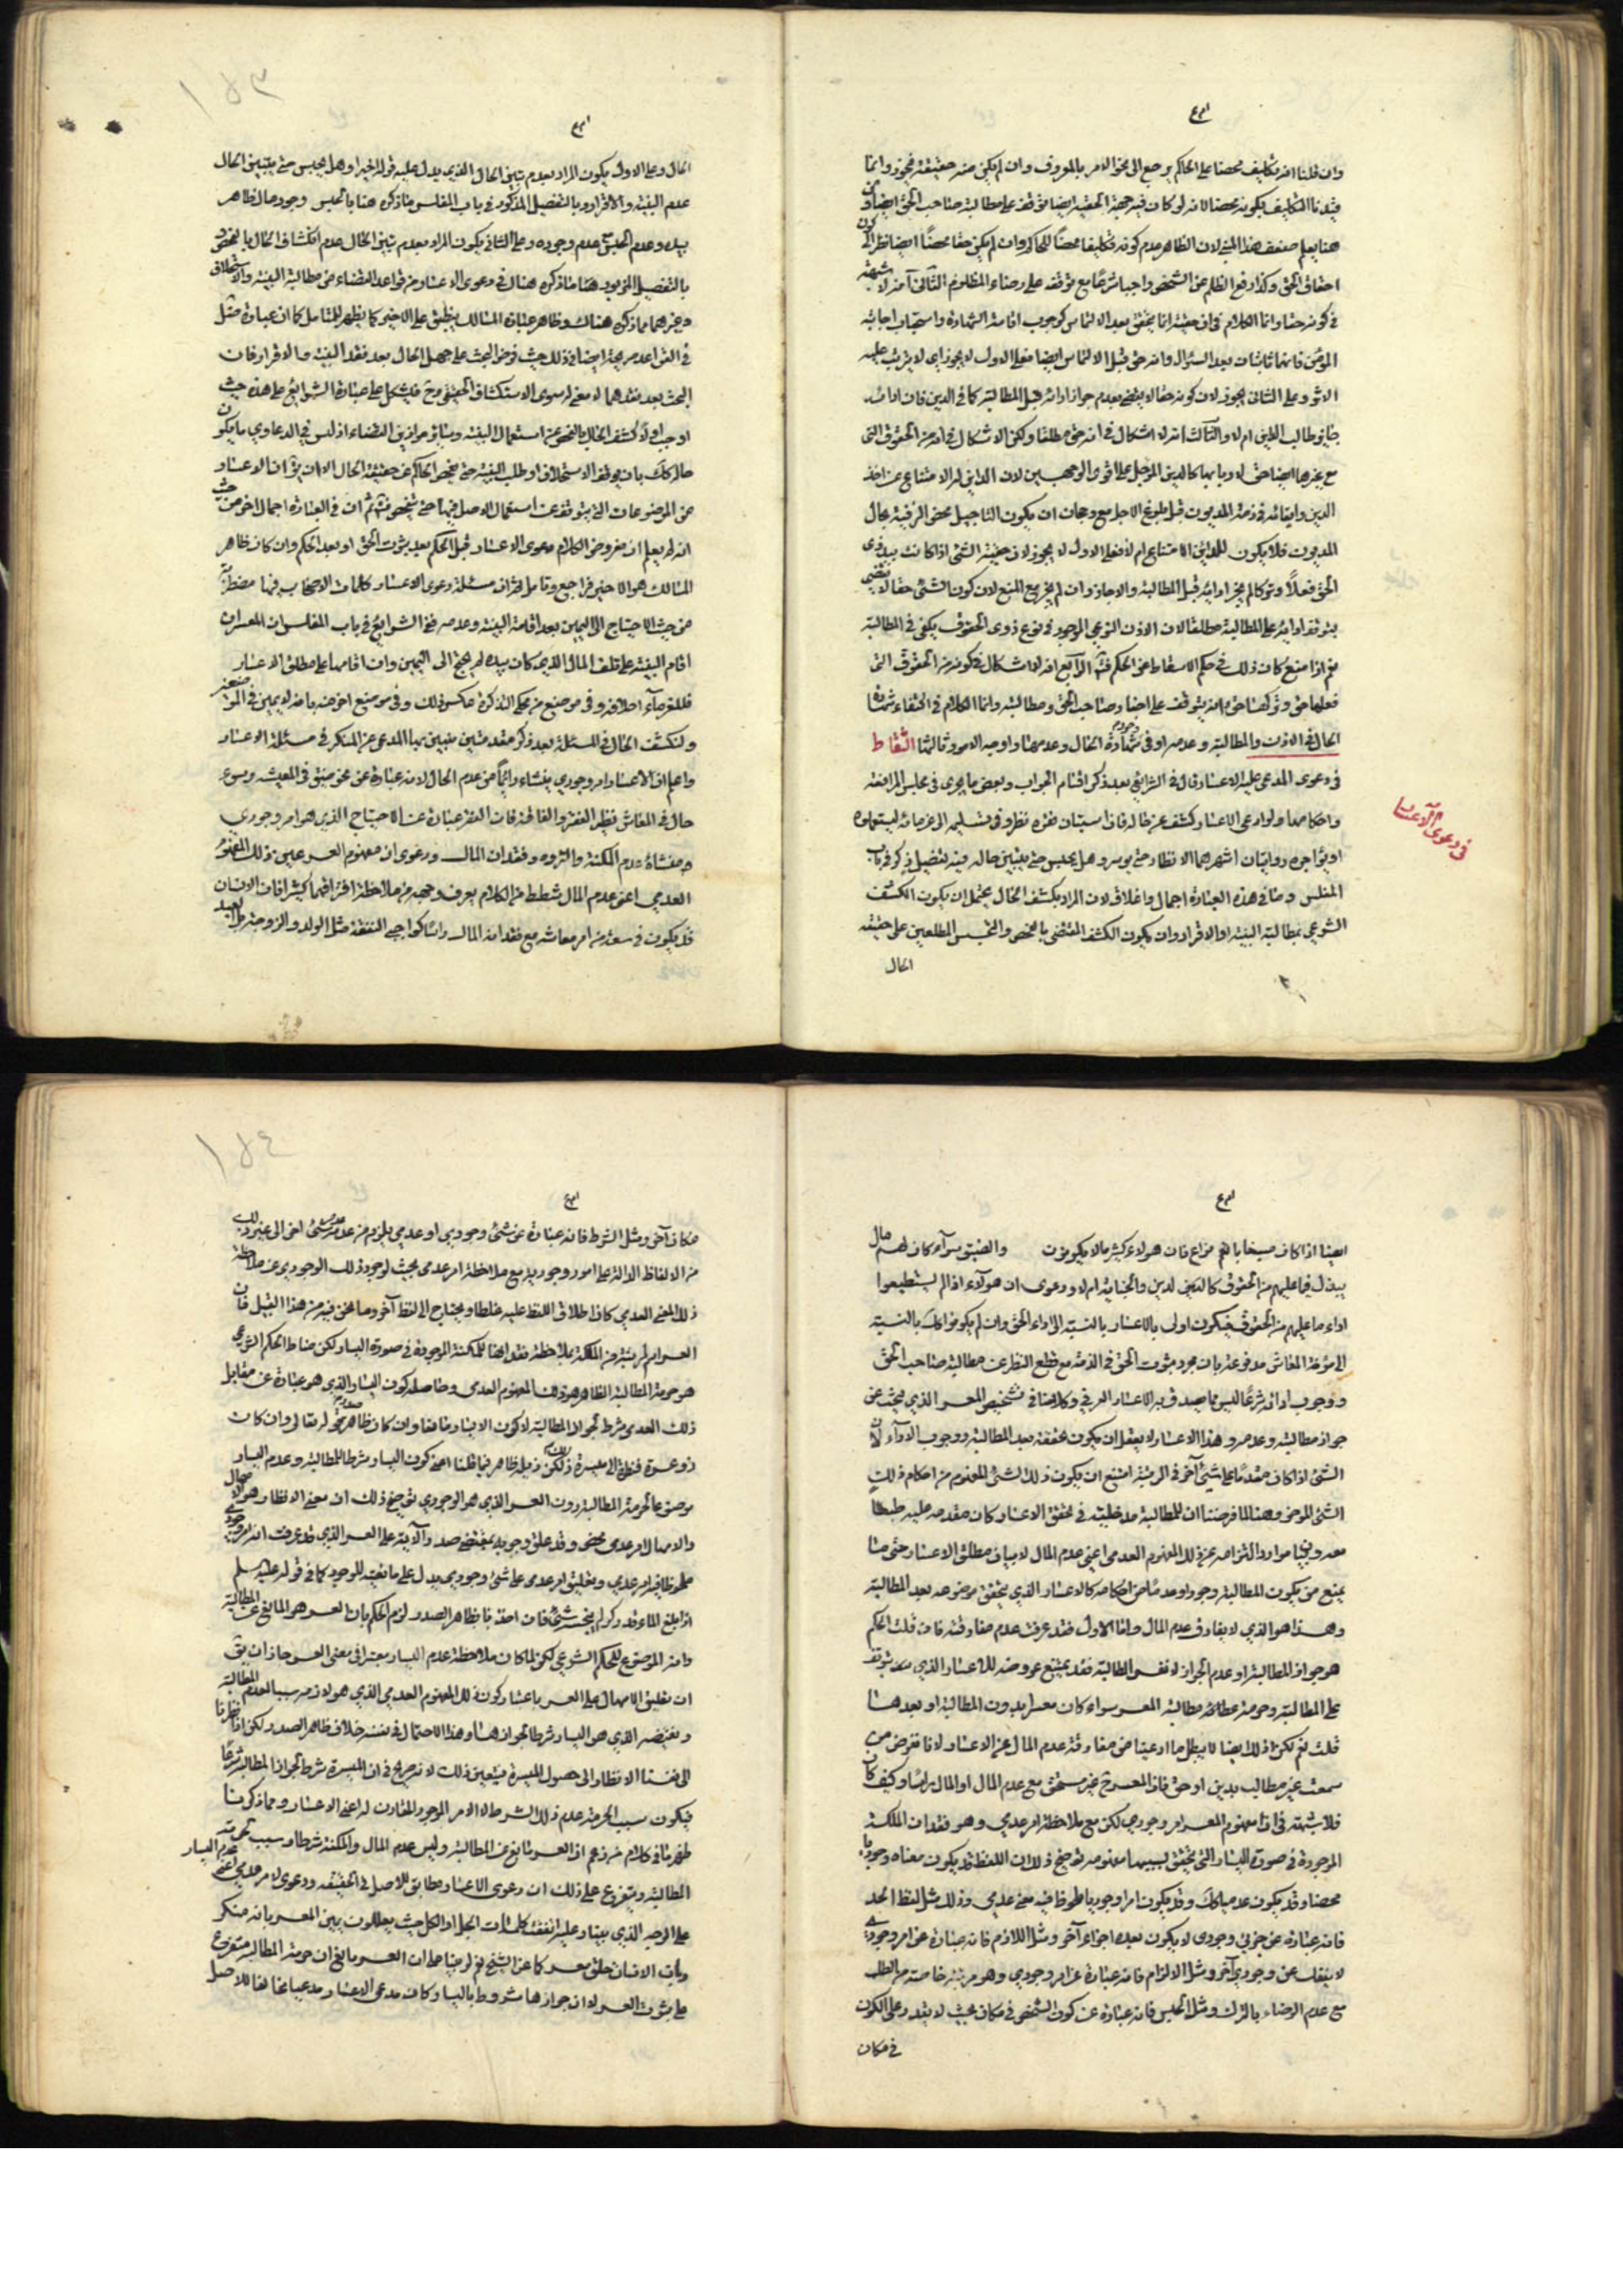 وان قلنا انه تكليف محضا على الحاكم يرجع الى نحو الامر بالمعروف وان لم يكن منه حقيقة فيجوز وانما
قيدنا التكليف بكونه محضا لانه لو كان فيه جهة الحقية ايضا توقف على مطالبة صاحب الحق ايضا
هنا يعلم ضعف هذا المبنى لان الظاهر عدم كونه تكليفا محضا للحاكم وان لم يكن حقا محضا ايضا نظرا الى كون
احقاق الحق وكذا رفع الظلم عن الشخص واجبا شرعا مع توقفه على رضاء المظلوم الثانى انه لا شبهة
فى كونه حقا وانما الكلام فى ان حقيته انما يتحقق بعد الالتماس كوجوب اقامة الشهادة واستحباب اجابة
المؤمن فانهما ثابتان بعد السؤال وانه حق قبل الالتماس ايضا فعلى الاول لا يجوز اى لا يترتب عليه
الاثر وعلى الثانى يجوز لان كونه حقا لا يقتضى بعدم جواز ادائه قبل المطالبة كما فى الدين فان اداءه
جايز طالب الداين ام لا والثالث انه لا اشكال فى انه حق مطلقا ولكن الاشكال فى انه من الحقوق التى
مع غيرها ايضا حق لا ربابها كالدين المؤجل على اقوى الوجهين لان الداين له الامتناع عن اخذ
الدين وابقائه فى ذمة المديون قبل بلوغ الاجل مع وجهان ان يكون التاجيل محض الرفية بحال
المديون فلا يكون للداين الامتناع ام لا فعلى الاول لا يجوز لان حقية الشئ اذا كانت بيد ذى
الحق فعلا وتركا لم يجز ادائه قبل المطالبة والاجازة وان لم يجز مع المنع لان كون الشئ حقا لا يقتضى
بتوقف ادائه على المطالبة مطلقا لان الاذن النوعى الموجود فى نوع ذوى الحقوق يكفى فى المطالبة
نعم اذا منع كان ذلك فى حكم الاسقاط عن الحكم ثم الرابع انه لا اشكال فى كونه من الحقوق التى
فعلها حق وتركها حق بانه يتوقف على احضار صاحب الحق ومطالبته وانما الكلام فى اكتفاء شهادة
الحال فى الاذن والمطالبة وعدمه او فى شهادة الحال وعدمها وا وجه الامور ثالثها التقاط
فى دعوى المدعى عليه الاعسار قال فى الشرايع بعد ذكر اقسام الجواب وبعض ما يجرى فى مجلس المرافعة
واحكامها ولو ادعى الاعسار كشف عن حاله فان استبان فقره انظر وفى تسليمه الى غرمائه ليستعملوه
او يؤاجروه روايتان اشهرهما الانظار حتى يوسر وهل يحبس حتى يتبين حاله فيه تفصيل ذكر فى باب
المفلس وما فى هذه العبارة اجمال واغلاق لان المراد بكشف الحال يحتمل ان يكون الكشف
الشرعى بمطالبة البينة او الاقرار وان يكون الكشف المقتضى بالفحص والتجسس المطلعين على حقيقة
الحال
فى دعوى الاعسار
١٥٣
الحال وعلى الاول يكون المراد بعدم تبين الحال الذى يدل عليه قوله اخيرا وهل يحبس حتى يتبين الحال
عدم البينة والاقرار وبالتفصيل المذكور فى باب المفلس ما ذكره هنا بالحبس وجود مال ظاهر
بيده وعدم الحبس مع عدم وجوده وعلى الثانى يكون المراد بعدم تبين الحال عدم انكشاف الحال بالفحص
بالتفصيل الموجود هنا ما ذكره هناك فى دعوى الاعسار من قواعد القضاء من مطالبة البينة والاستحلاف
وغيرهما مما ذكره هناك وظاهر عبارة المسالك ينطبق على الاخير كما يظهر للمتامل كما ان عبارة مثل
فى القواعد صريحة ايضا فى ذلك حيث فرض البحث على جهل الحال بعد فقد البينة والاقرار فان
البحث بعد فقدهما لا معنى له سوى الاستكشاف الحقيقى وح فيشكل على عبارة الشرايع على هذه حيث
اوجب اولا كشف الحال بالفحص عن استعمال البينة وسائر موازين القضاء اذ ليس فى الدعاوى ما يكون
حاله كك بان يوقف الاستحلاف او طلب البينة حتى يفحص الحاكم عن حقيقة الحال الا ان يق ان الاعسار
من الموضوعات التى يتوقف عن استعمال الاصل فيها حتى يتفحص ثم ان فى العبارة اجمال اخر من حيث
انه لم يعلم ان مفروض الكلام دعوى الاعسار قبل الحكم بعد ثبوت الحق او بعد الحكم وان كان ظاهر
المسالك هو الاخير فراجع وتامل ثم ان مسئلة دعوى الاعسار كلمات الاصحاب فيها مضطربة
من حيث الاحتياج الى اليمين بعد اقامة البينة وعدمه ففى الشرايع فى باب المفلس ان المعسر ان
اقام البينة على تلف المال الذى كان بيده لم يحتج الى اليمين وان اقامها على مطلق الاعسار
فللغرماء احلافه وفى موضع من محكى التذكرة عكس ذلك وفى موضع اخر منه بانه لا يمين فى الموضعين
ولنكشف الحال فى المسئلة بعد ذكر مقدمتين يتبين بهما المدعى من المنكر فى مسئلة الاعسار
واعلم ان الاعسار امر وجودى ينشاء دائما من عدم المال لانه عبارة عن نحو ضيق فى المعيشة وسوء
حال فى المعاش نظير الفقر والفاقة فان الفقر عبارة عن الاحتياج الذى هو امر وجودى
ومنشاؤه عدم المكنة والثروة وفقدان المال ودعوى ان مفهوم العسر عين ذلك المفهوم
العدمى اعنى عدم المال شطط من الكلام يعرف وجهه من ملاحظة افتراقهما كثيرا فان الانسان
قد يكون فى سعة من امر معاشه مع فقدانه المال راسا كواجبى النفقة مثل الولد والزوجة والعبد
ايضا اذا كان مسخايا لهم مزاع فان هؤلاء كثيرا ما لا يكونون والضيق سواء كان لهم مال
يبذل فيما عليهم من الحقوق كالدين والجناية ام لا ودعوى ان هؤلاء اذا لم يستطيعوا
اداء ما عليهم من الحقوق فيكون اولى بالاعسار بالنسبة الى اداء الحق وان لم يكونوا كك بالنسبة
الى مؤنة المعاش مدفوعة بان مجرد ثبوت الحق فى الذمة مع قطع النظر عن مطالبة صاحب الحق
ووجوب ادائه شرعا ليس مما يصدق به الاعسار العرفى وكلامنا فى تشخيص المعسر الذى يبحث عن
جواز مطالبته وعدمه وهذا الاعسار لا يعقل ان يكون تحققه بعد المطالبة ووجوب الاداء لان
الشئ اذا كان مقدما على شئ آخر فى الرتبة امتنع ان يكون ذلك الشئ المفهوم من احكام ذلك
الشئ المؤخر وهنا لما فرضنا ان للمطالبة مدخلية فى تحقق الاعسار كان مقدمه عليه طبعا
يمنع من يكون المطالبة وجودا وعدما من احكامه كالاعسار الذى يتحقق موضوعه بعد المطالبة
وهذا هو الذى لا يفارق عدم المال واما الاول فقد عرفت عدم مفارقته فان قلت الحكم
هو جواز المطالبة او عدم الجواز لا نفس المطالبة فقد يمتنع عروضه للاعسار الذى يتوقف
على المطالبة وحرمة مطالبة المعسر سواء كان معسرا بدون المطالبة او بعدها
قلت نعم لكن ذلك ايضا لا يبطل ما ادعينا من مفارقة عدم المال عن الاعسار لانا نفرض من
سمعت غير مطالب بدين او حق فان المعسر ح غير مستحق مع عدم المال او المال راسا وكيف كان
فلا شبهة فى ان مفهوم المعسر امر وجودى لكن مع ملاحظة امر عدمى وهو فقدان الملكة
الموجودة فى صورة اليسار التى يتحقق بسببها مفهومه توضيح ذلك ان اللفظ قد يكون معناه وجوديا
محضا وقد يكون عدميا كك وقد يكون امرا وجوديا ملحوظا فيه معنى عدمى وذلك مثل لفظ الحد
فانه عبارة عن جزئى وجودى لا يكون بعده اجزاء آخر ومثل اللازم فانه عبارة عن امر وجودى
لا ينفك عن وجودى آخر ومثل الالزام فانه عبارة عن امر وجودى وهو مرتبة خاصة من الطلب
مع عدم الرضاء بالترك ومثل الحبس فانه عبارة عن كون الشخص فى مكان بحيث لا يقدر على الكون
فى مكان
١٥٤
مكان آخر ومثل الشرط فانه عبارة عن شئ وجودى او عدمى يلزم من عدمه عدم شئ اخر الى غير ذلك
من الالفاظ الدالة على امور وجودية مع ملاحظة امر عدمى بحيث لو جود ذلك الوجودى عن ملاحظة
ذلك المعنى العدمى كان اطلاق اللفظ عليه غلطا ويحتاج الى لفظ آخر وما نحن فيه من هذا القبيل فان
العسر امر لمرتبة من الملكة بملاحظة فقدانها للمكنة الموجودة فى صورة اليسار لكن مناط الحكم الشرعى
هو حرمة المطالبة الظاهر هو ذلك المفهوم العدمى وحاصله كون اليسار الذى هو عبارة عن مقابل
ذلك العدمى شرط لجواز المطالبة لا كون الاعسار مانعا وان كان ظاهر قوله تعالى وان كان
ذو عسرة فنظرة الى ميسرة ذلك لكن ذيله ظاهر فيما قلنا اعنى كون اليسار شرطا للمطالبة وعدم اليسار
موضوعا لحرمة المطالبة دون العسر الذى هو الوجودى توضيح ذلك ان معنى الانظار هو الامهال
والامهال امر عدمى محض وقد علق وجوبه بمقتضى صدر الآية على العسر الذى قد عرفت انه امر وجودى
ملحوظا فيه امر عدمى وتعليق امر عدمى على شئ وجودى يدل على مانعيته للوجود كما فى قوله عليه السلم
اذا بلغ الماء قدر كر لم ينجسه شئ فان اخذنا بظاهر الصدر لزم الحكم بان العسر هو المانع عن المطالبة
وانه الموضوع للحكم الشرعى لكن لما كان ملاحظة عدم اليسار معتبرا فى معنى العسر جاز ان يق
ان تعليق الامهال على العسر باعتبار كون ذلك المفهوم العدمى الذى هو لازمه سببا لعدم المطالبة
ونقيضه الذى هو اليسار شرطا لجوازها وهذا الاحتمال فى نفسه خلاف ظاهر الصدر ولكن اذا نظرنا
الى الانظار الى حصول الميسرة فيتعين ذلك لانه صريح فى ان الميسرة شرط لجواز المطالبة شرعا
فيكون سبب الحرمة عدم ذلك الشرط لا الامر الموجود المقارن له اعنى الاعسار ومما ذكرنا
ظهر ما فى كلام من زعم ان العسر مانع عن المطالبة وليس عدم المال والمكنة شرطا وسبب لحرمة
المطالبة ويتفرع على ذلك ان دعوى الاعسار مطابق للاصل فى الحقيقة ودعوى لامر عدمى اعنى عدم اليسار
على الوجه الذى بيناه وعليه اتفقت كلمات الجل او الكل حيث يعللون يمين المعسر بانه منكر
وبان الانسان خلق معسرا كما عن الشيخ نعم لو بنينا على ان العسر مانع وان حرمة المطالبة متفرع
على ثبوت العسر لا ان جوازها مشروط باليسار وكان مدعى الاعسار مدعيا مخالفا للاصل